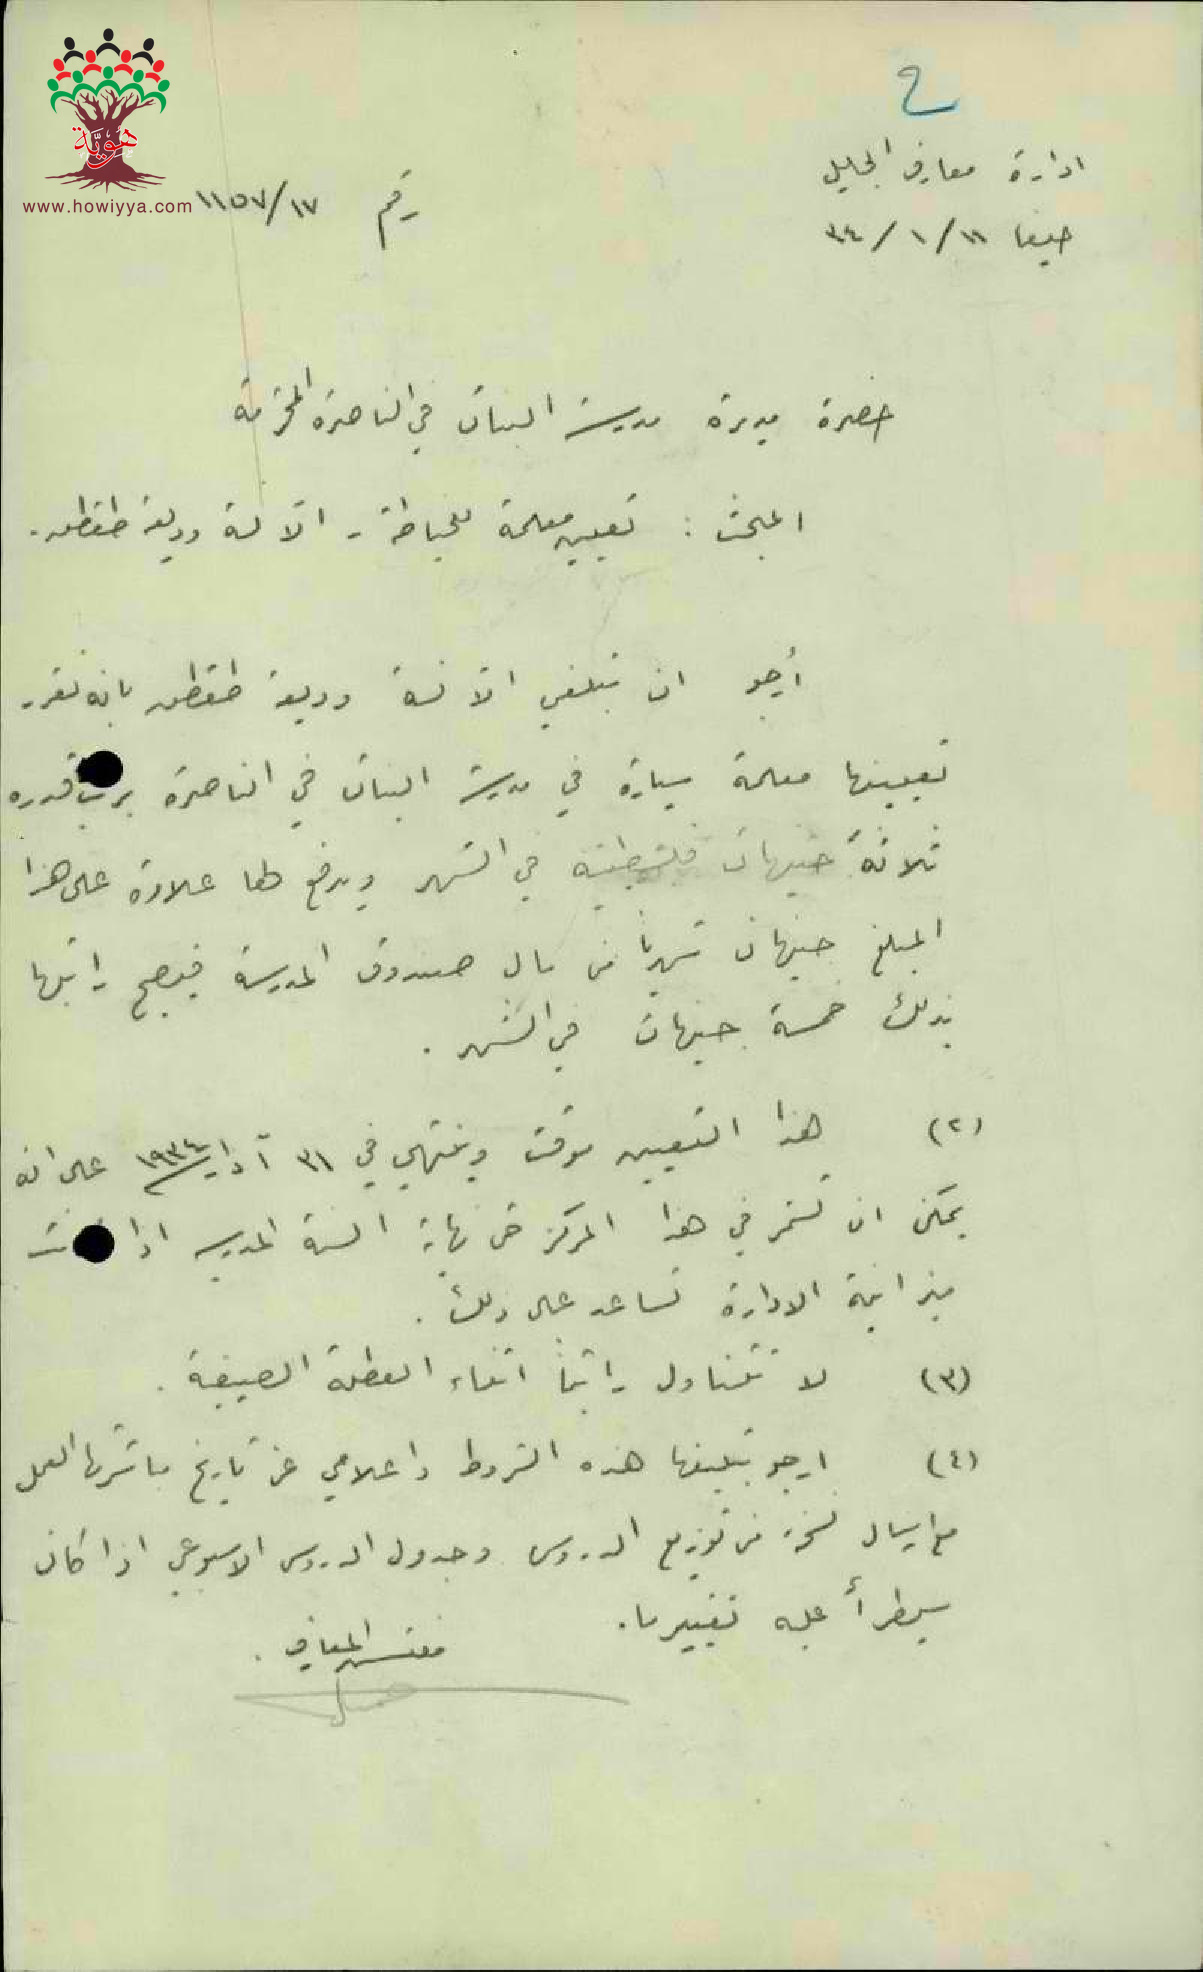 ح
ادارة معارف الجليل
حيفا ١١/١/٣٤
رقم ١١٥٧/١٧
هوية
www.howiyya.com
حضرة مديرة مدرسة البنات في الناصرة المحترمة
المبحث : تعيين معلمة للخياطة - الآنسة وديعة طقطق.
أرجو ان تبلغي الآنسة وديعة طقطق بانه تقرر
تعيينها معلمة سيارة في مدرسة البنات في الناصرة براتب قدره
ثلاثة جنيهات فلسطينية في الشهر ويدفع لها علاوة على هذا
المبلغ جنيهان شهرياً من مال صندوق المدرسة فيصبح راتبها
بذلك خمسة جنيهات في الشهر .
(٢) هذا التعيين موقت وينتهي في ٣١ آذار ١٩٣٤ على انه
يمكن ان تستمر في هذا المركز حتى نهاية السنة المدرسية اذا
ميزانية الادارة تساعد على ذلك .
(٣) لا تتناول راتباً اثناء العطلة الصيفية .
(٤) ارجو تبليغها هذه الشروط واعلامي عن تاريخ مباشرتها العمل
مع ارسال نسخة من توزيع الدروس وجدول الدروس الاسبوعي اذا كان
سيطرأ عليه تغيير ما.
مفتش المعارف .